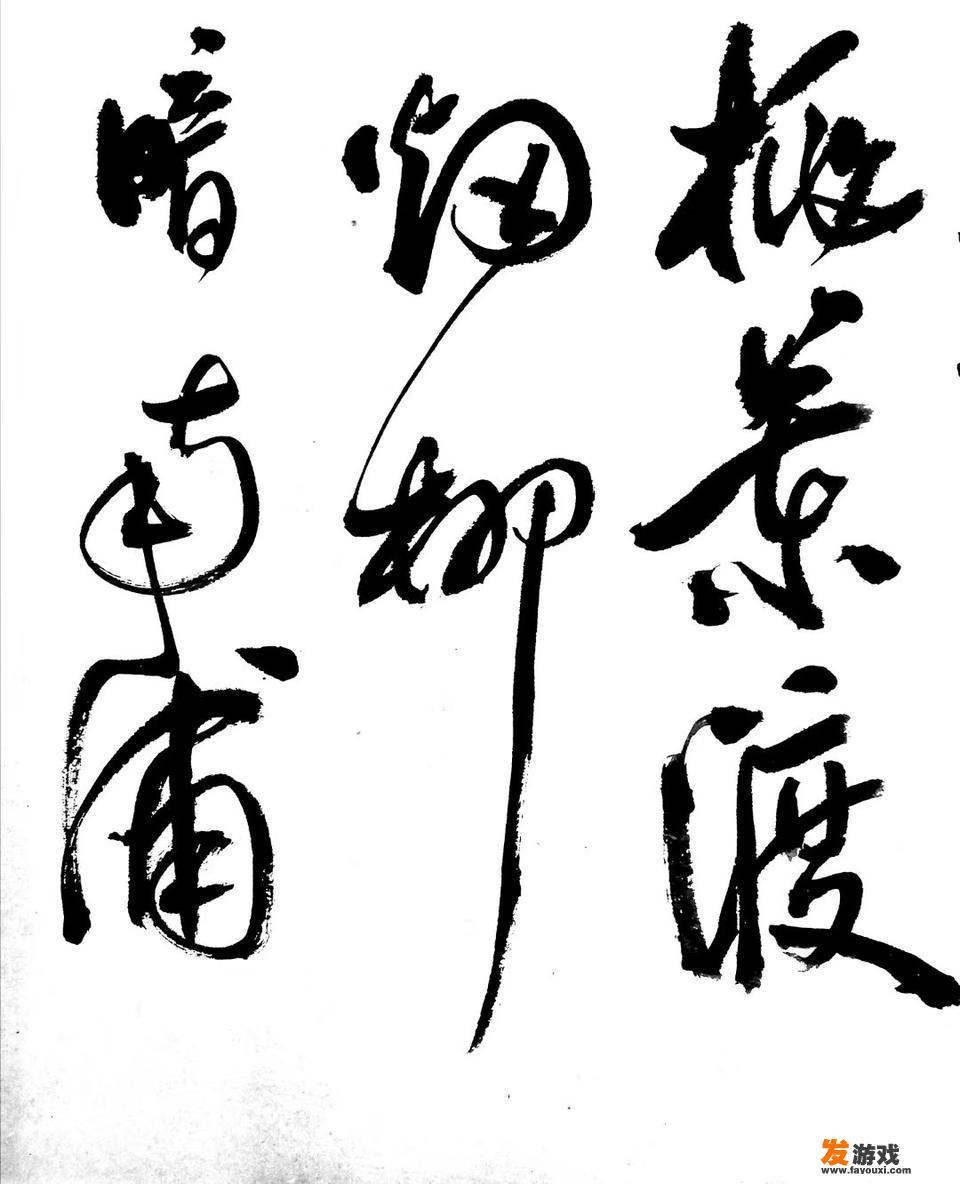 桃葉渡
烟柳
暗南浦
发游戏
www.fayouxi.com